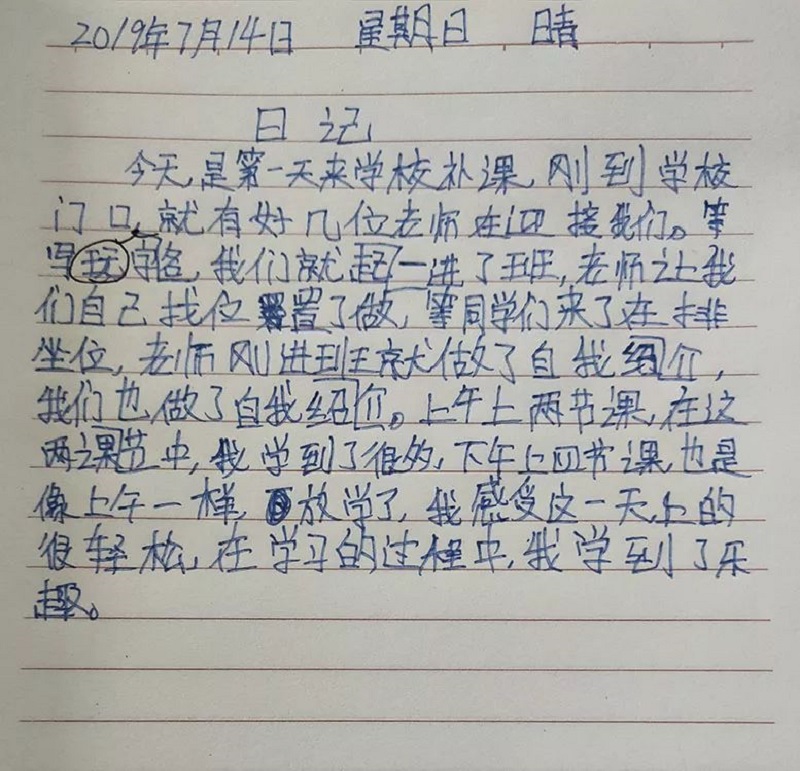 2019年7月14日 星期日 晴
日记
今天,是第一天来学校补课,刚到学校
门口,就有好几位老师在迎接我们。等
写玩字名,我们就起一进了班,老师让我
们自己找位置了做,等同学们来了在排
坐位,老师刚进到王就做了自我绍介,
我们也做了自我绍介。上午上两节课,在这
两课节中,我学到了很多,下午上四节课,也是
像上午一样,放学了,我感受这一天上的
很轻松,在学习的过程中,我学到了乐
趣。